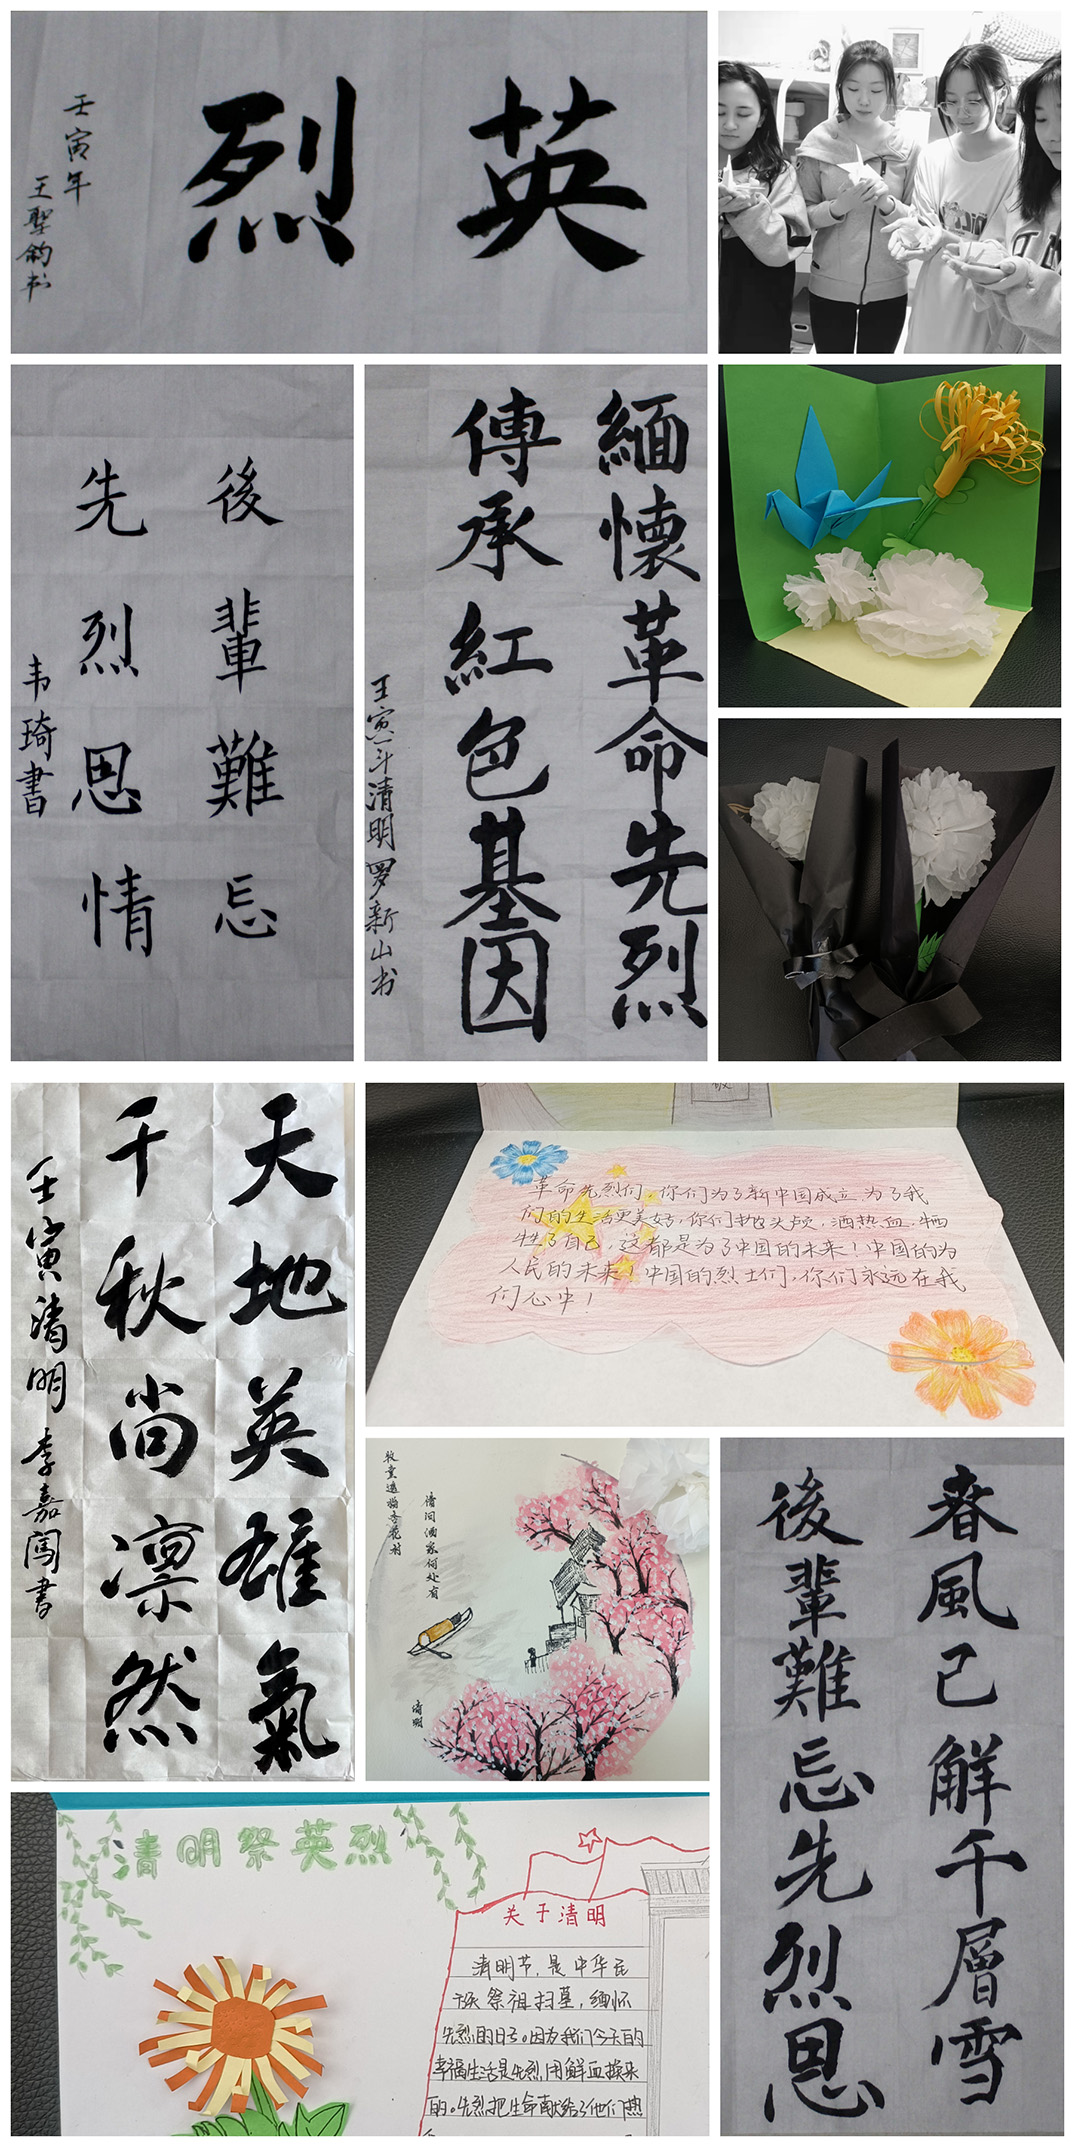 英烈
壬寅年
王聖鈞书
後輩難忘
先烈恩情
韦琦書
緬懷革命先烈
傳承紅色基因
壬寅年清明罗新山书
天地英雄氣
千秋尚凛然
壬寅清明李嘉闯書
革命先烈们，你们为了新中国成立为了我
们的生活更美好，你们抛头颅，洒热血，牺
牲了自己，这都是为了中国的未来！中国的为
人民的未来！中国的烈士们，你们永远在我
们心中！
请问酒家何处有
牧童遥指杏花村
清明
春風已解千層雪
後輩難忘先烈恩
清明祭英烈
关于清明
清明节，是中华民
族祭祖扫墓，缅怀
先烈的日子。因为我们今天的
幸福生活是先烈用鲜血换来
的。先烈把生命献给了他们热